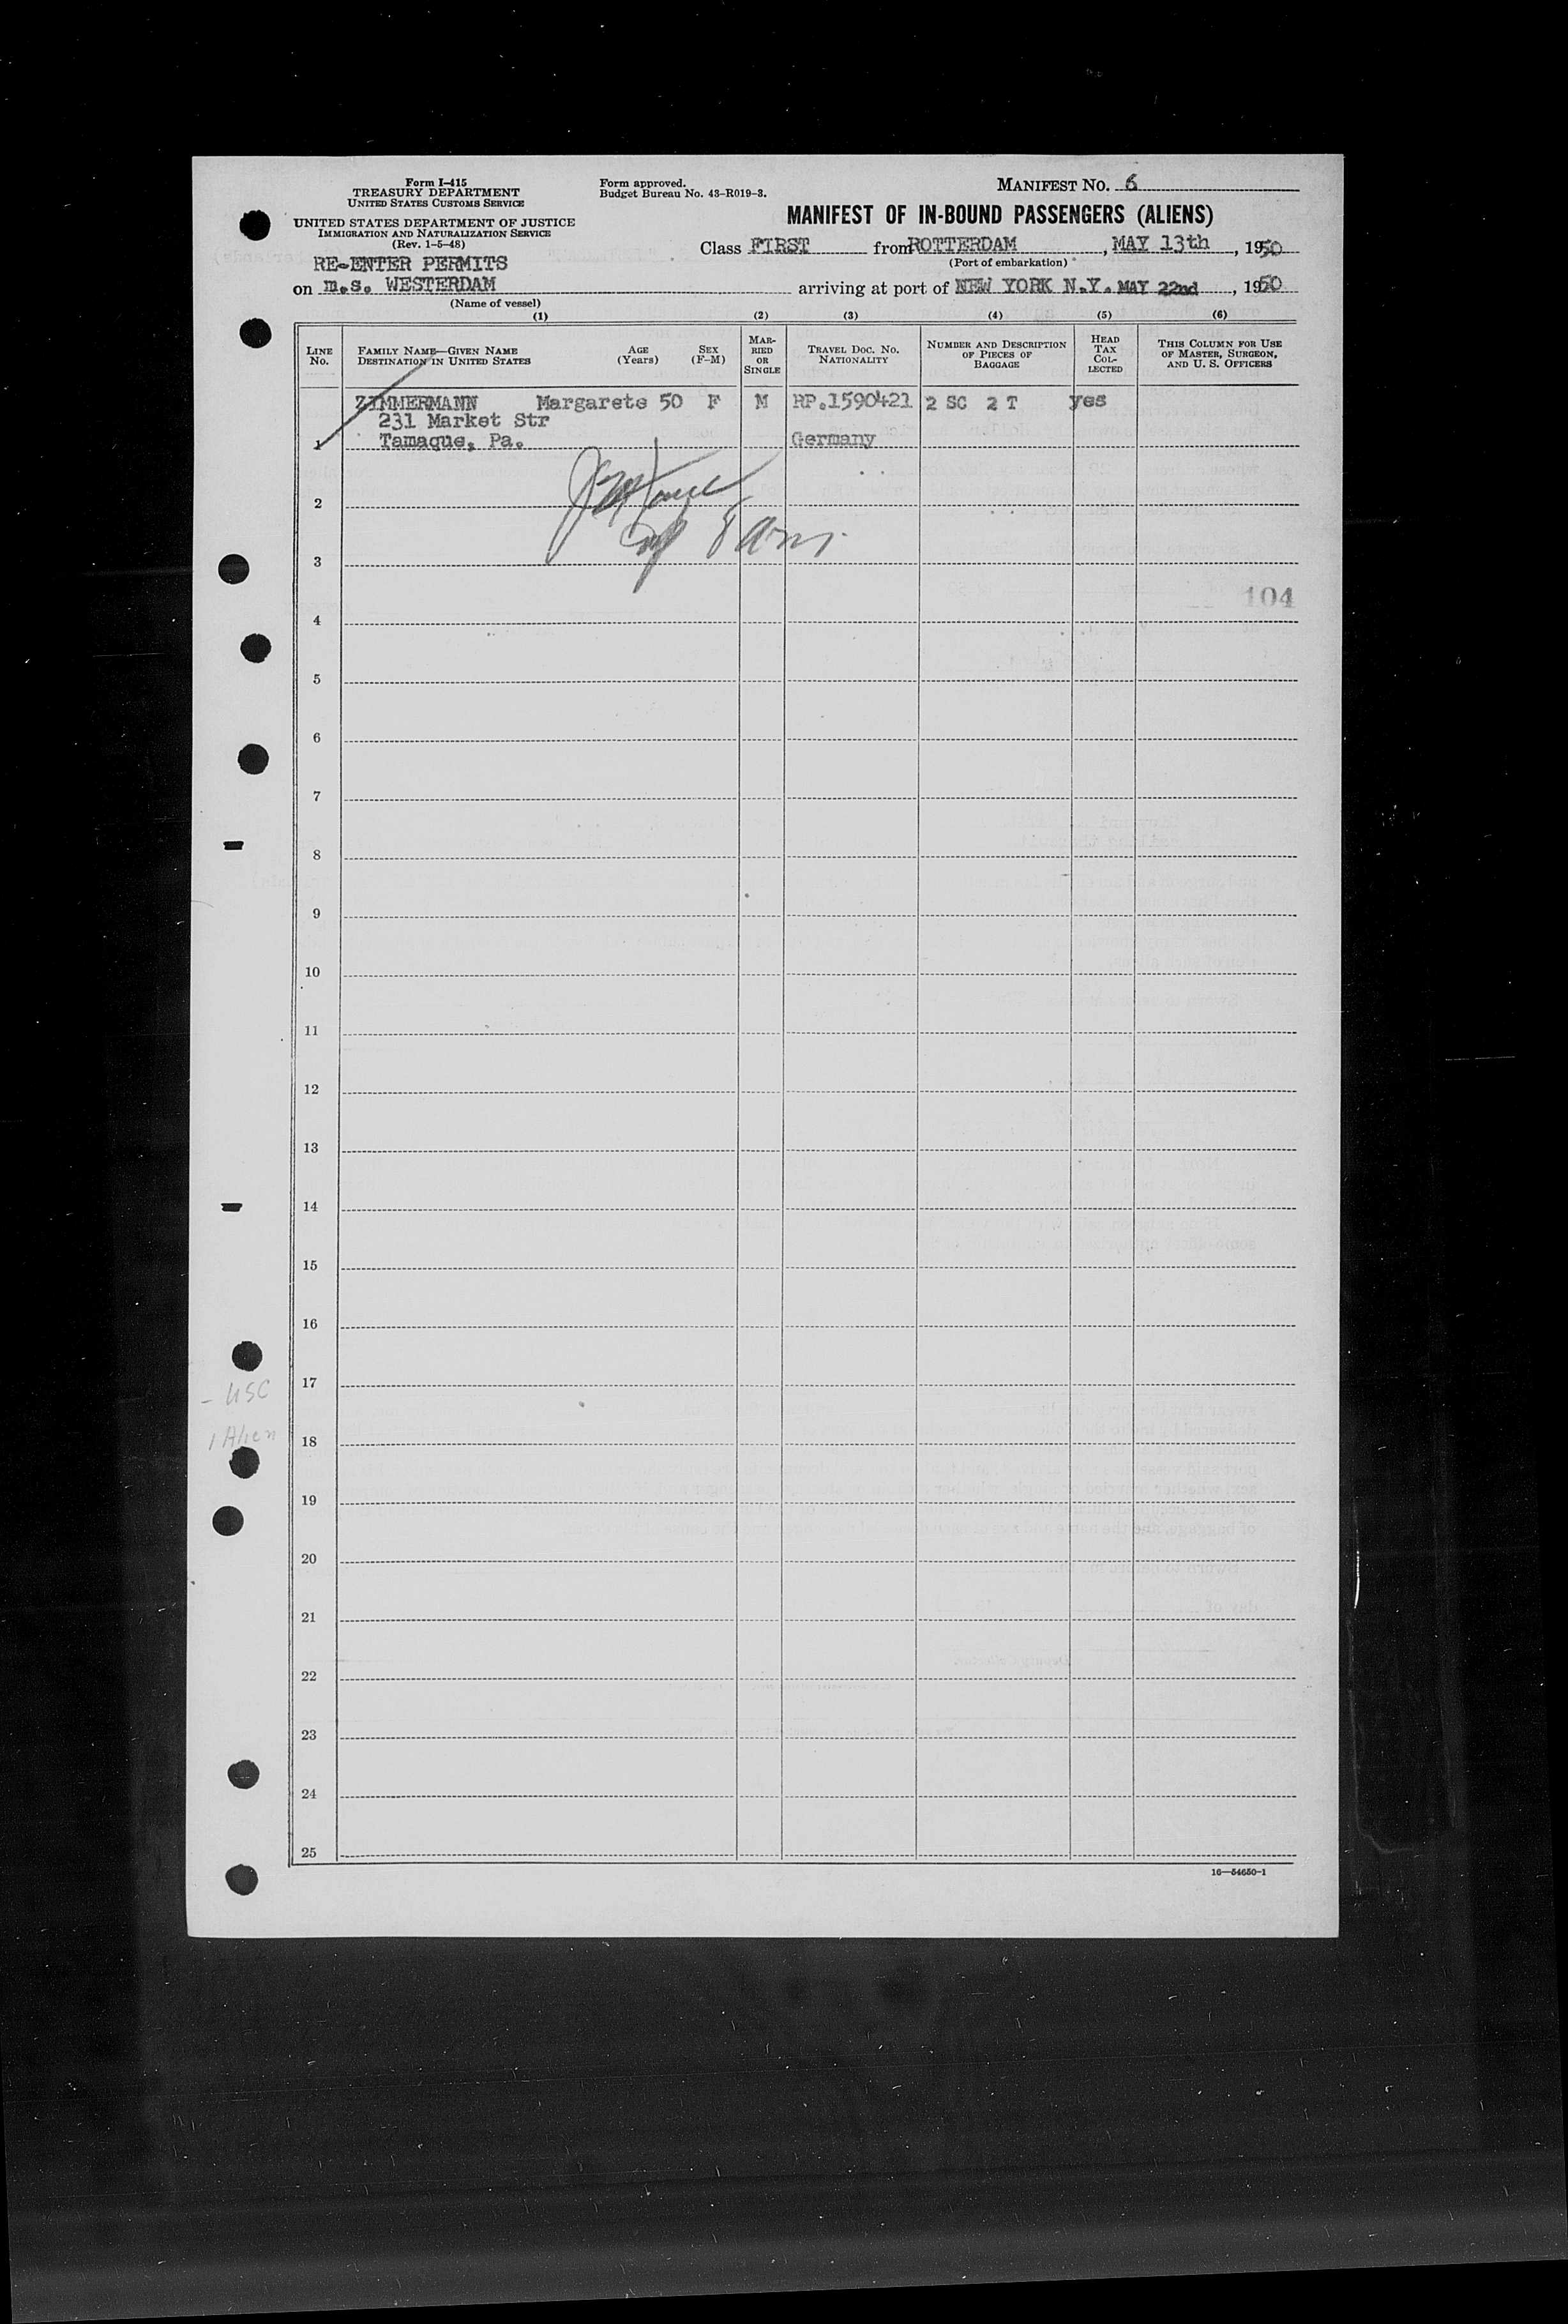 Form I-415
TREASURY DEPARTMENT
UNITED STATES CUSTOMS SERVICE
UNITED STATES DEPARTMENT OF JUSTICE
IMMIGRATION AND NATURALIZATION SERVICE
(Rev. 1-5-48)
Form approved.
Budget Bureau No. 43-R019-3.
MANIFEST NO. 6
MANIFEST OF IN-BOUND PASSENGERS (ALIENS)
Class FIRST from ROTTERDAM, MAY 13th, 1950
(Port of embarkation)
RE-ENTER PERMITS
on m.s. WESTERDAM arriving at port of NEW YORK N.Y. MAY 22nd, 1950
(Name of vessel)
(1) (2) (3) (4) (5) (6)
LINE No. FAMILY NAME—GIVEN NAME DESTINATION IN UNITED STATES AGE (Years) SEX (F-M) MARRIED OR SINGLE TRAVEL DOC. NO. NATIONALITY NUMBER AND DESCRIPTION OF PIECES OF BAGGAGE HEAD TAX COLLECTED THIS COLUMN FOR USE OF MASTER, SURGEON, AND U. S. OFFICERS
ZIMMERMANN Margarete 50 F M RP.1590421 2 SC 2 T yes
231 Market Str
1 Tamaque, Pa. Germany
2
3
104
4
5
6
7
8
9
10
11
12
13
14
15
16
17
- USC
1 Alien
18
19
20
21
22
23
24
25
16—54650-1